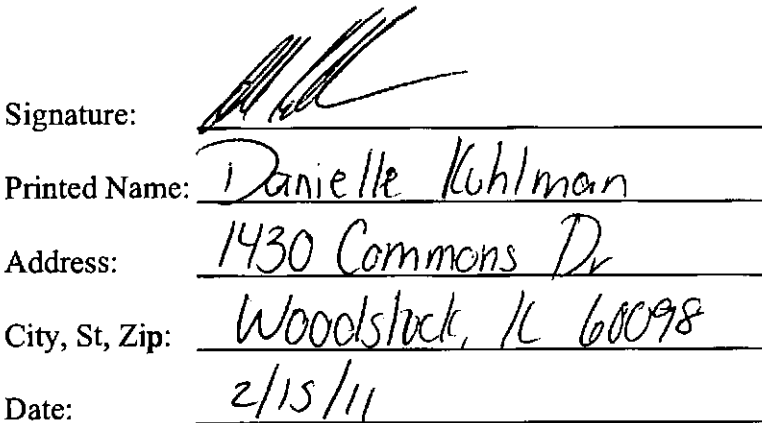 Signature:
Printed Name: Danielle Kuhlman
Address: 1430 Commons Dr
City, St, Zip: Woodstock, IL 60098
Date: 2/15/11